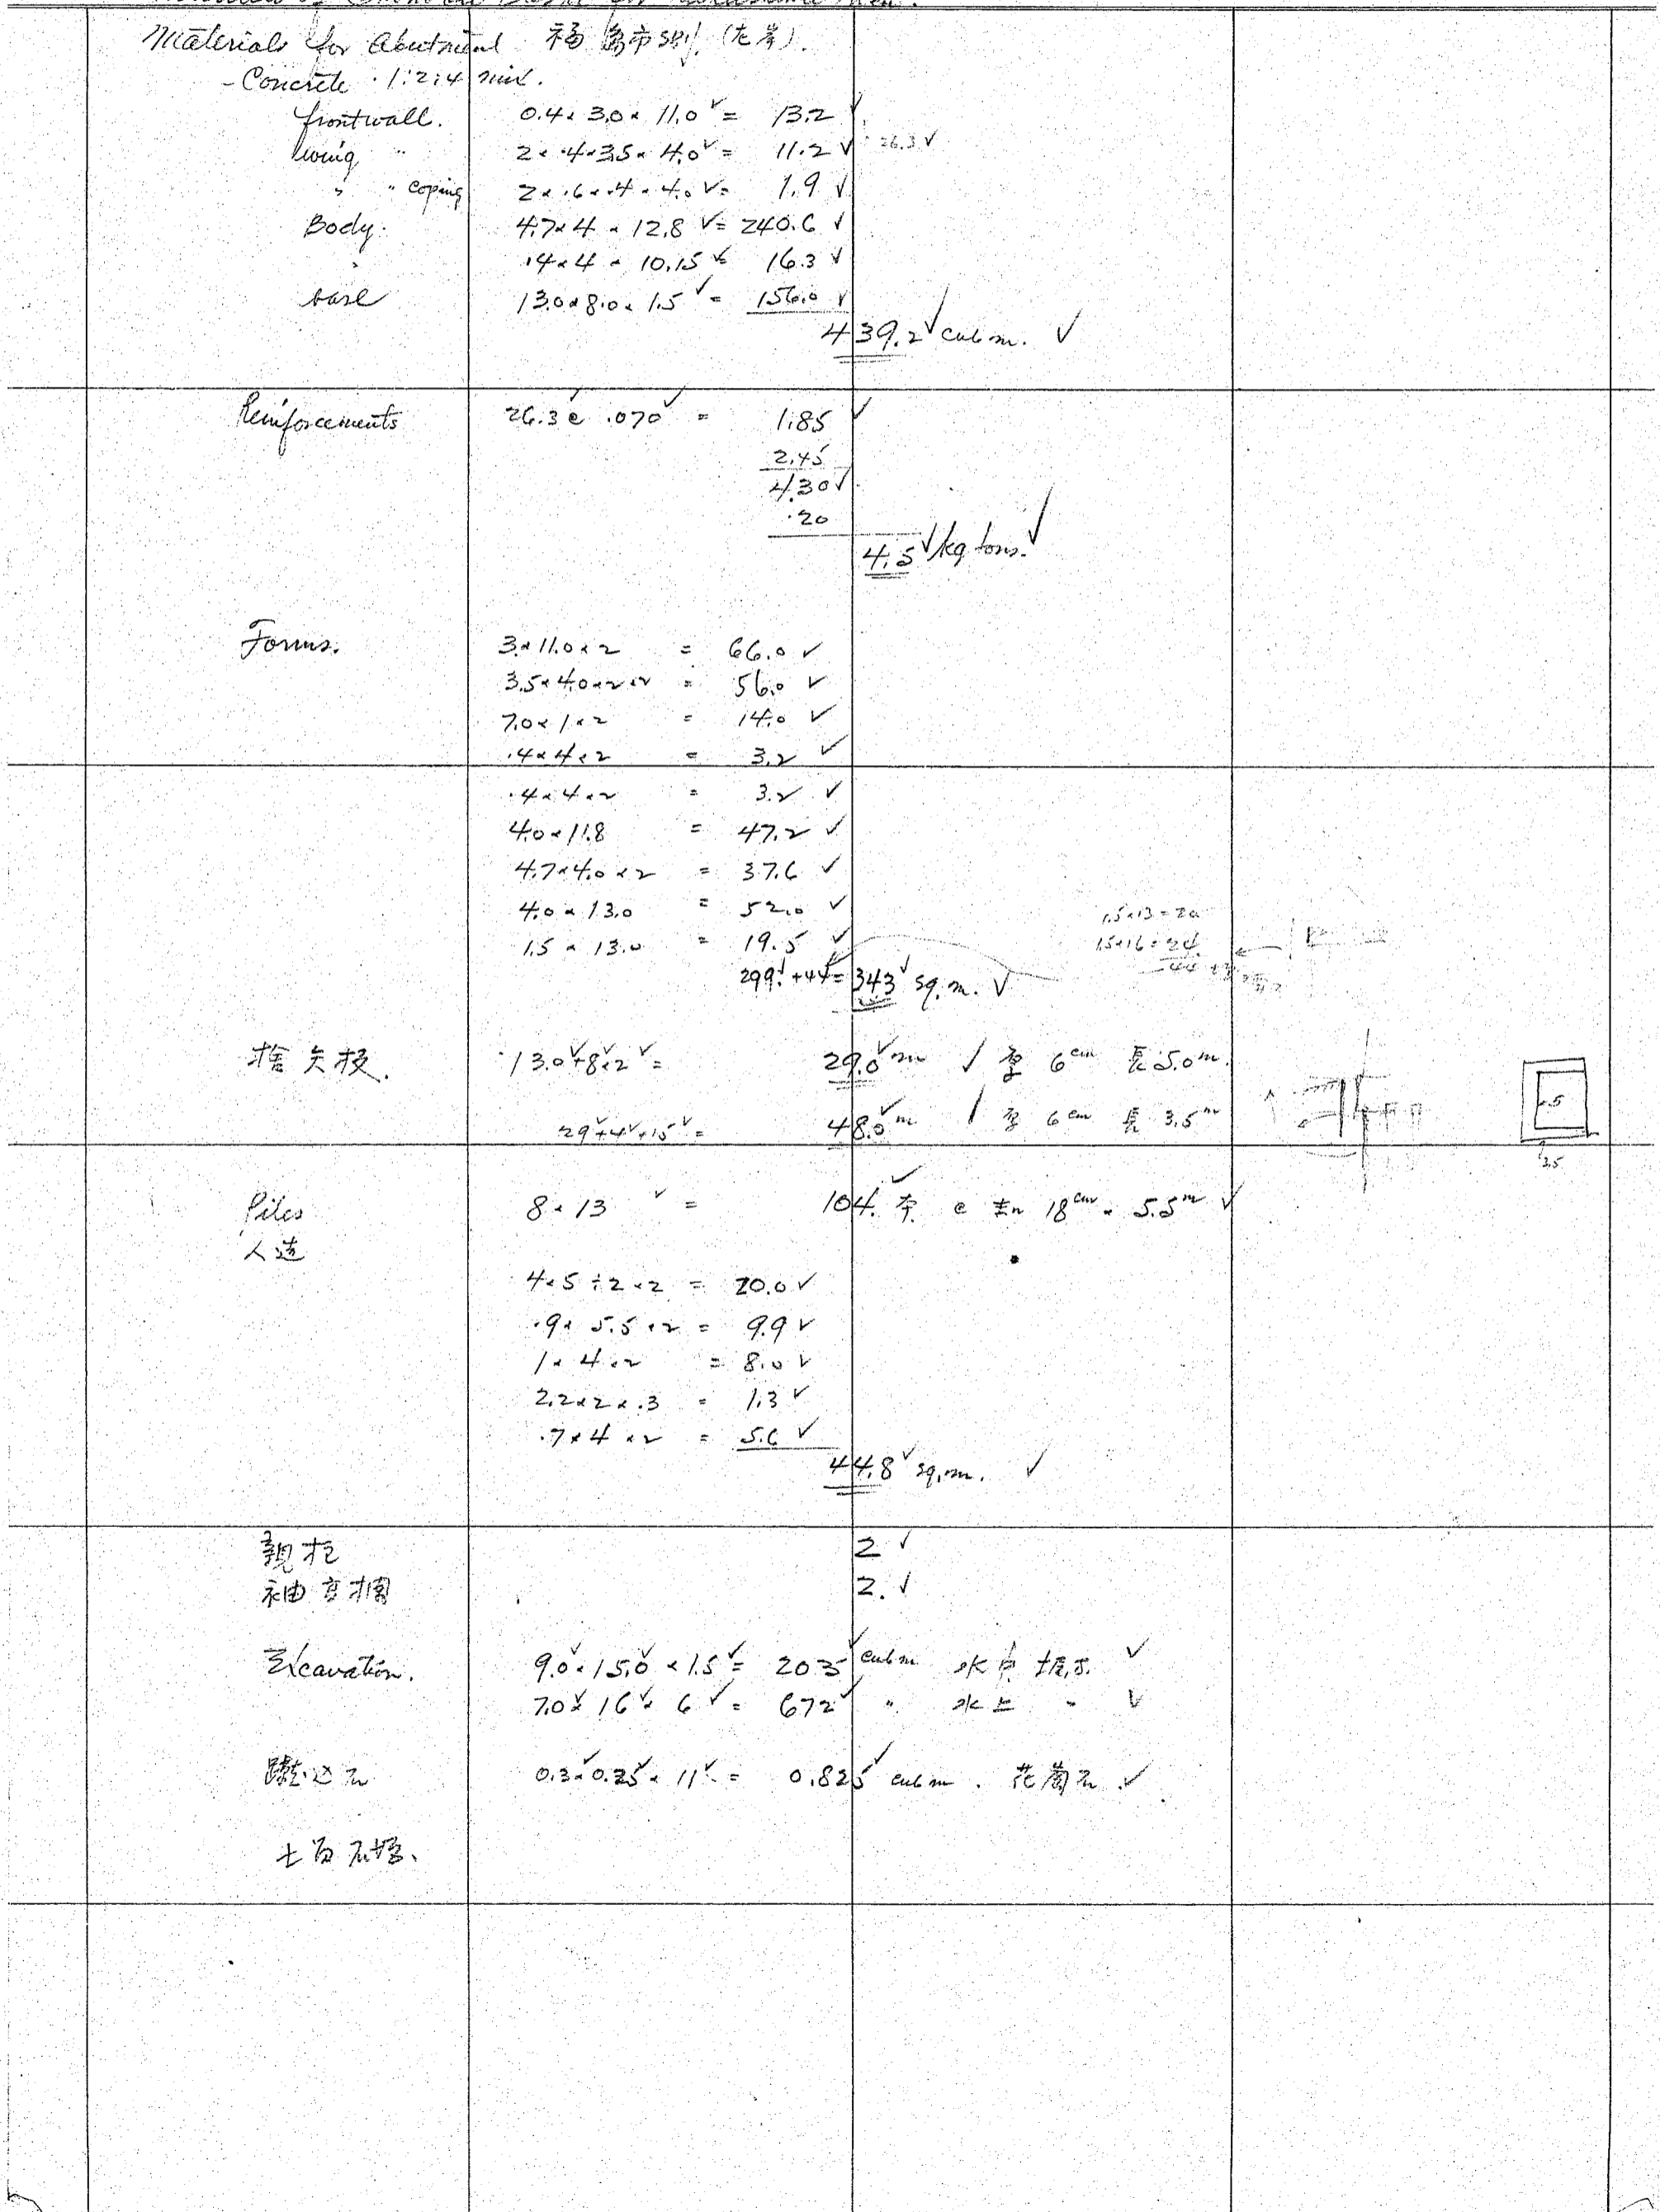 Materials for Abutment 福島市側 (左岸).
- Concrete 1:2:4 mix.
frontwall. 0.4 x 3.0 x 11.0 ✓ = 13.2 ✓
wing " 2 x .4 x 3.5 x 4.0 ✓ = 11.2 ✓ 26.3 ✓
" " coping 2 x .6 x .4 x 4.0 ✓ = 1.9 ✓
Body. 4.7 x 4 x 12.8 ✓ = 240.6 ✓
" .4 x 4 x 10.15 ✓ = 16.3 ✓
base 13.0 x 8.0 x 1.5 ✓ = 156.0 ✓
439.2 ✓ cub m. ✓
Reinforcements 26.3 @ .070 ✓ = 1.85 ✓
2.45
4.30 ✓
.20
4.5 ✓ kg tons. ✓
Forms. 3 x 11.0 x 2 = 66.0 ✓
3.5 x 4.0 x 2 x 2 = 56.0 ✓
7.0 x 1 x 2 = 14.0 ✓
.4 x 4 x 2 = 3.2 ✓
.4 x 4 x 2 = 3.2 ✓
4.0 x 11.8 = 47.2 ✓
4.7 x 4.0 x 2 = 37.6 ✓
4.0 x 13.0 = 52.0 ✓ 1.5 x 13 = 20
1.5 x 13.0 = 19.5 ✓ 1.5 x 16 = 24
299 ✓ + 44 = 343 ✓ sq. m. ✓ 44
捨矢板. 13.0 ✓ + 8 ✓ x 2 ✓ = 29.0 ✓ m 厚 6 cm 長 5.0 m.
29 ✓ + 4 ✓ + 15 ✓ = 48.0 ✓ m 厚 6 cm 長 3.5 m
Piles 8 x 13 ✓ = 104. ✓ 本 @ 末口 18 cm x 5.5 m ✓
人造
4 x 5 ÷ 2 x 2 = 20.0 ✓
.9 x 5.5 x 2 = 9.9 ✓
1 x 4 x 2 = 8.0 ✓
2.2 x 2 x .3 = 1.3 ✓
.7 x 4 x 2 = 5.6 ✓
44.8 ✓ sq. m. ✓
親柱 2 ✓
袖高欄 2. ✓
Excavation. 9.0 ✓ x 15.0 ✓ x 1.5 ✓ = 203 ✓ cub m 水中掘り. ✓
7.0 ✓ x 16 ✓ x 6 ✓ = 672 ✓ " 水上 " ✓
蹴込石 0.3 ✓ x 0.25 ✓ x 11 ✓ = 0.825 ✓ cub m. 花崗石 ✓